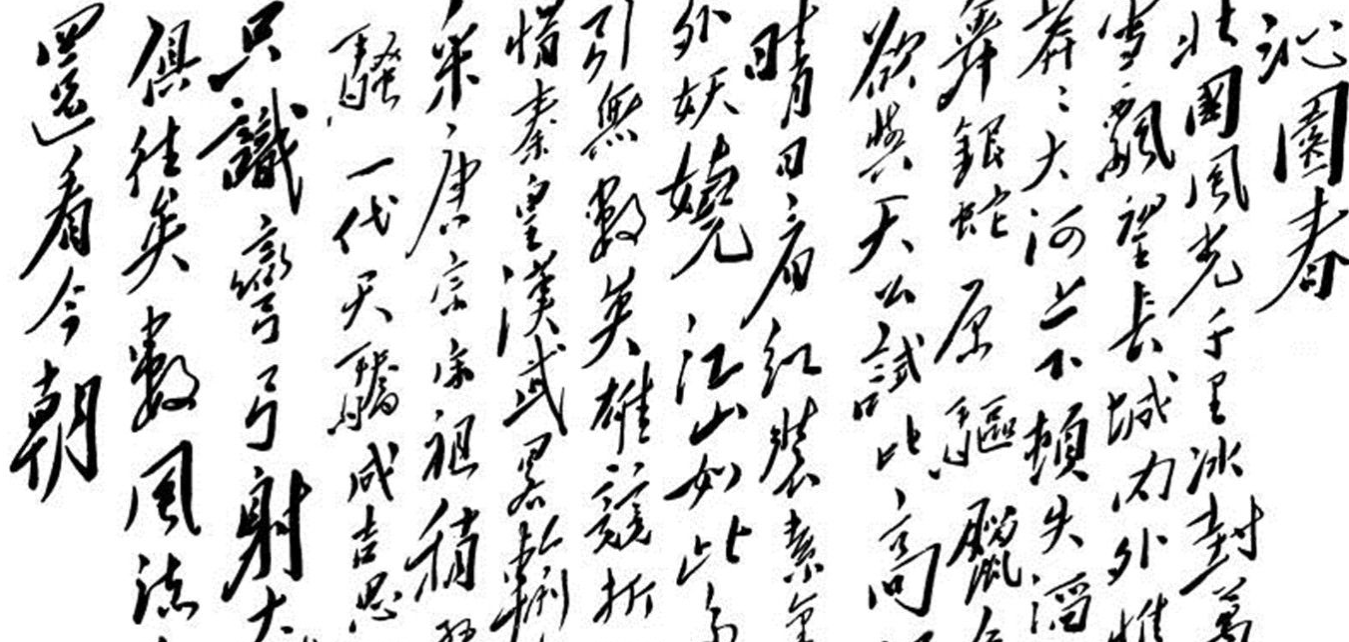 沁園春
北國風光千里冰封萬
雪飄望長城内外惟
莽々大河上下頓失滔
舞銀蛇原驅臘
欲與天公試比高
晴日看紅裝素裹
外妖嬈江山如此多
引無數英雄競折
惜秦皇漢武畧輸
采唐宗宋祖稍
騷一代天驕成吉思
只識彎弓射大
俱往矣數風流
還看今朝